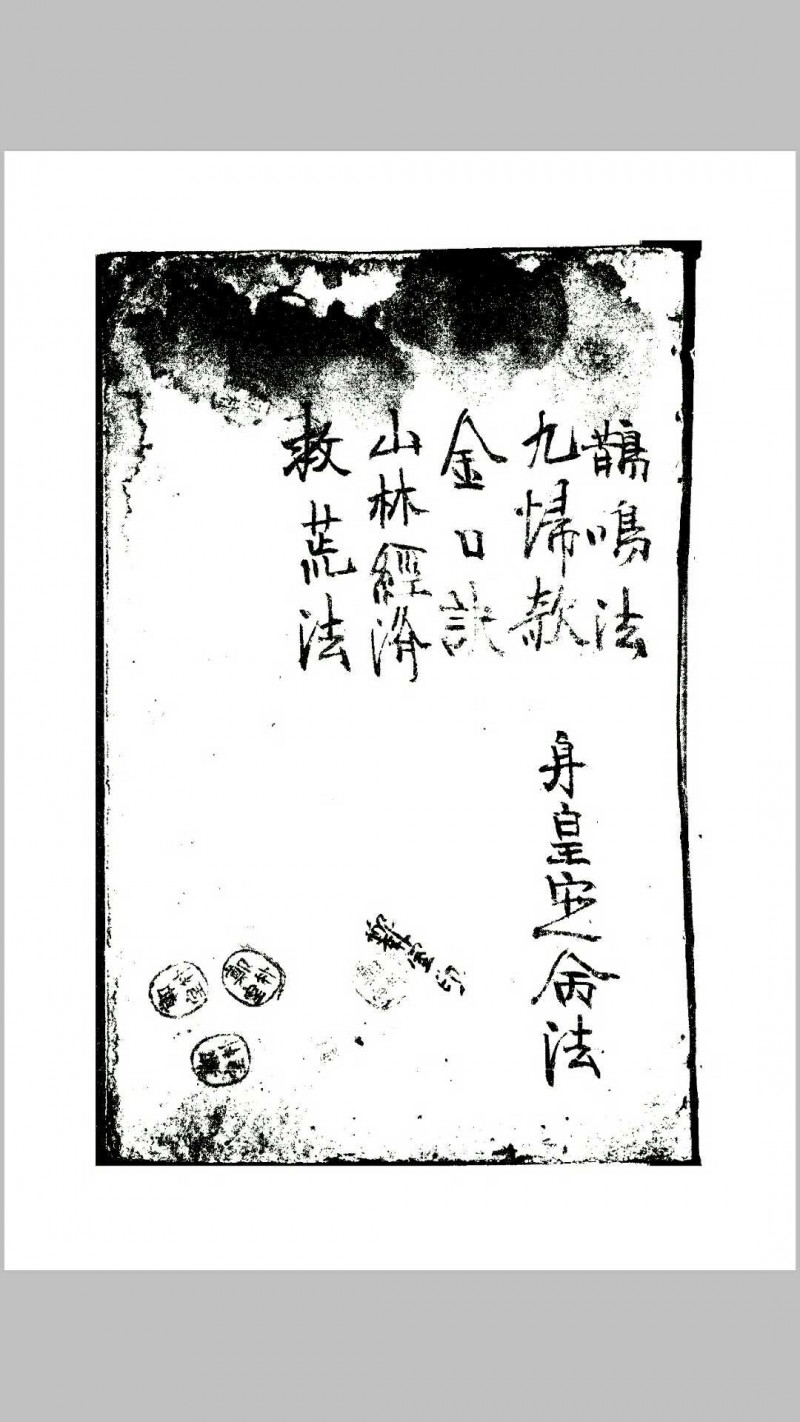 鵲鳴法
九歸款
金口訣
山林經濟
救荒法
身皇定命法